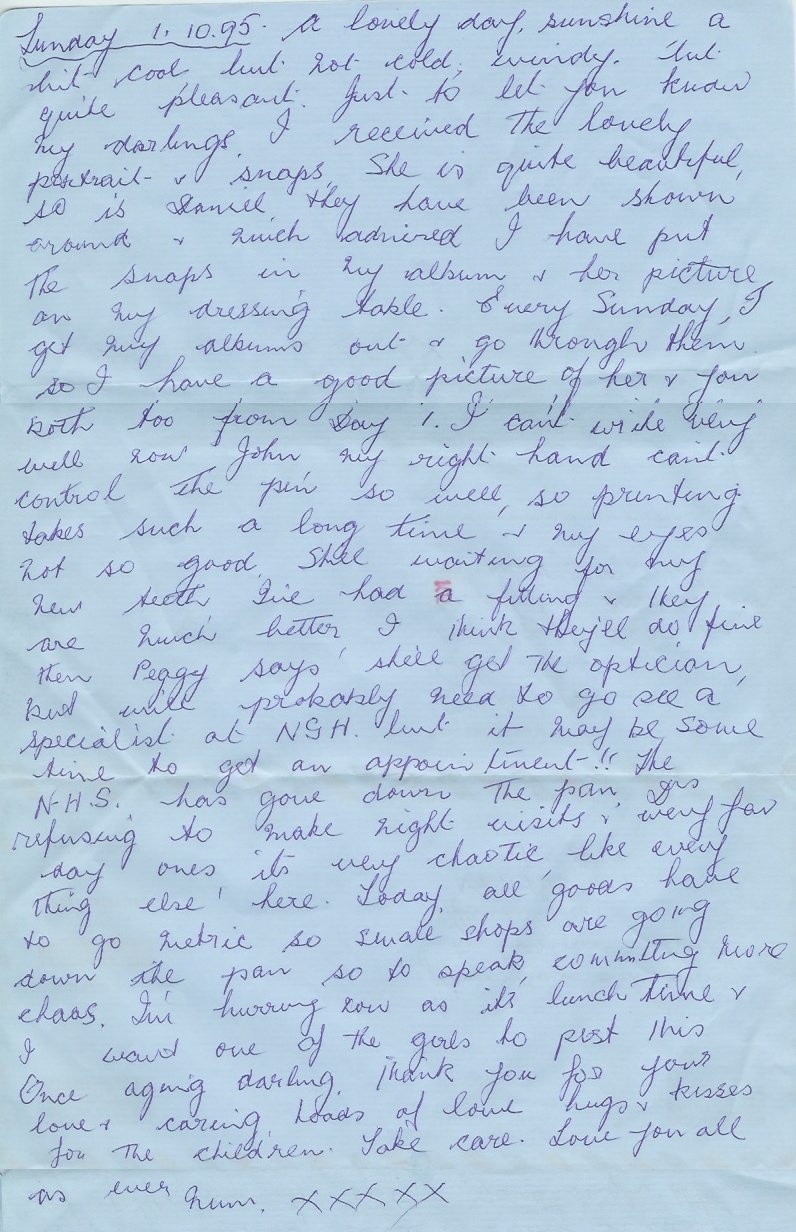 Sunday 1.10.95. A lovely day, sunshine a
bit cool but not cold, windy. but
quite pleasant. Just to let you know
my darlings, I received the lovely
portrait & snaps. She is quite beautiful,
so is Daniel, they have been shown
around & much admired I have put
the snaps in my album & her picture
on my dressing table. Every Sunday, I
get my albums out & go through them
so I have a good picture of her & you
both too from Day 1. I can't write very
well now John my right hand can't
control the pen so well, so printing
takes such a long time & my eyes
not so good. Still waiting for my
new teeth, I've had a filling & they
are much better I think they'll do fine
then Peggy says she'll get the optician,
but will probably need to go see a
specialist at NGH. but it may be some
time to get an appointment!! The
N.H.S. has gone down the pan Drs
refusing to make night visits & very few
day ones its very chaotic like every
thing else here. Today all goods have
to go metric so small shops are going
down the pan so to speak, committing more
chaos. I'm hurring now as its lunch time &
I want one of the girls to post this
Once aging darling, thank you for your
love & caring, loads of love hugs & kisses
for the children. Take care. Love you all
as ever Mum. XXXXX